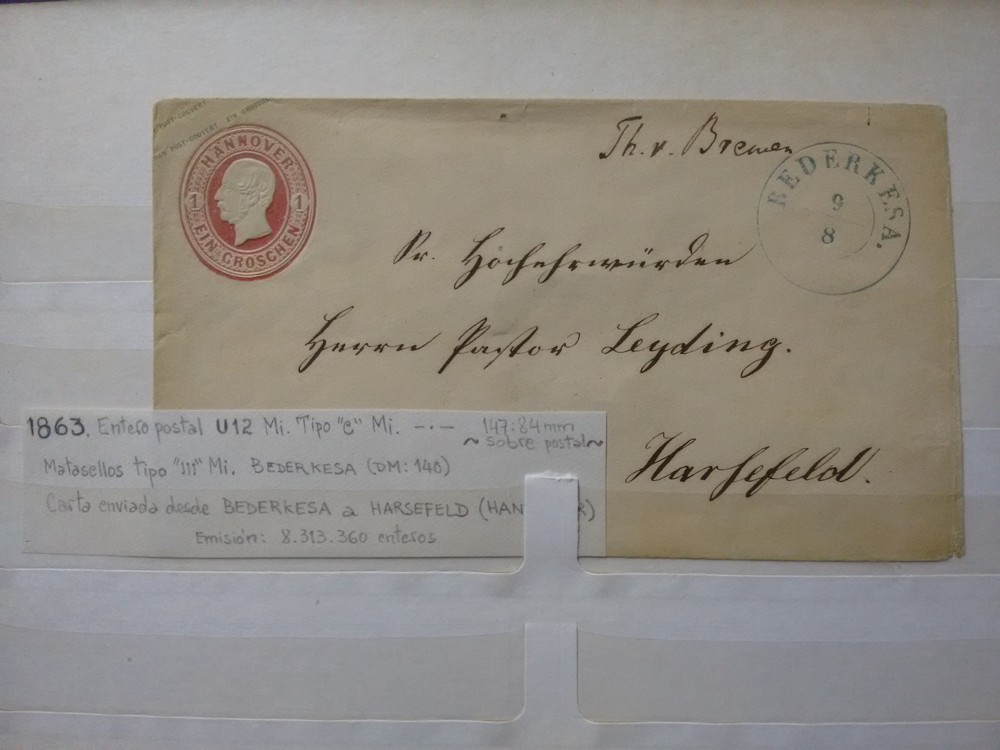 POST-COUVERT EIN GROSCHEN
POST-COUVERT
HANNOVER
1 1
EIN GROSCHEN
Th. v. Bremen
BEDERKESA.
9
8
Sr. Hochehrwürden
Herrn Pastor Leyding.
Harsefeld.
1863. Entero postal U12 Mi. Tipo "C" Mi. -·- 147:84mm
~ sobre postal ~
Matasellos tipo "III" Mi. BEDERKESA (DM: 140)
Carta enviada desde BEDERKESA a HARSEFELD (HAN R)
Emisión: 8.313.360 enteros